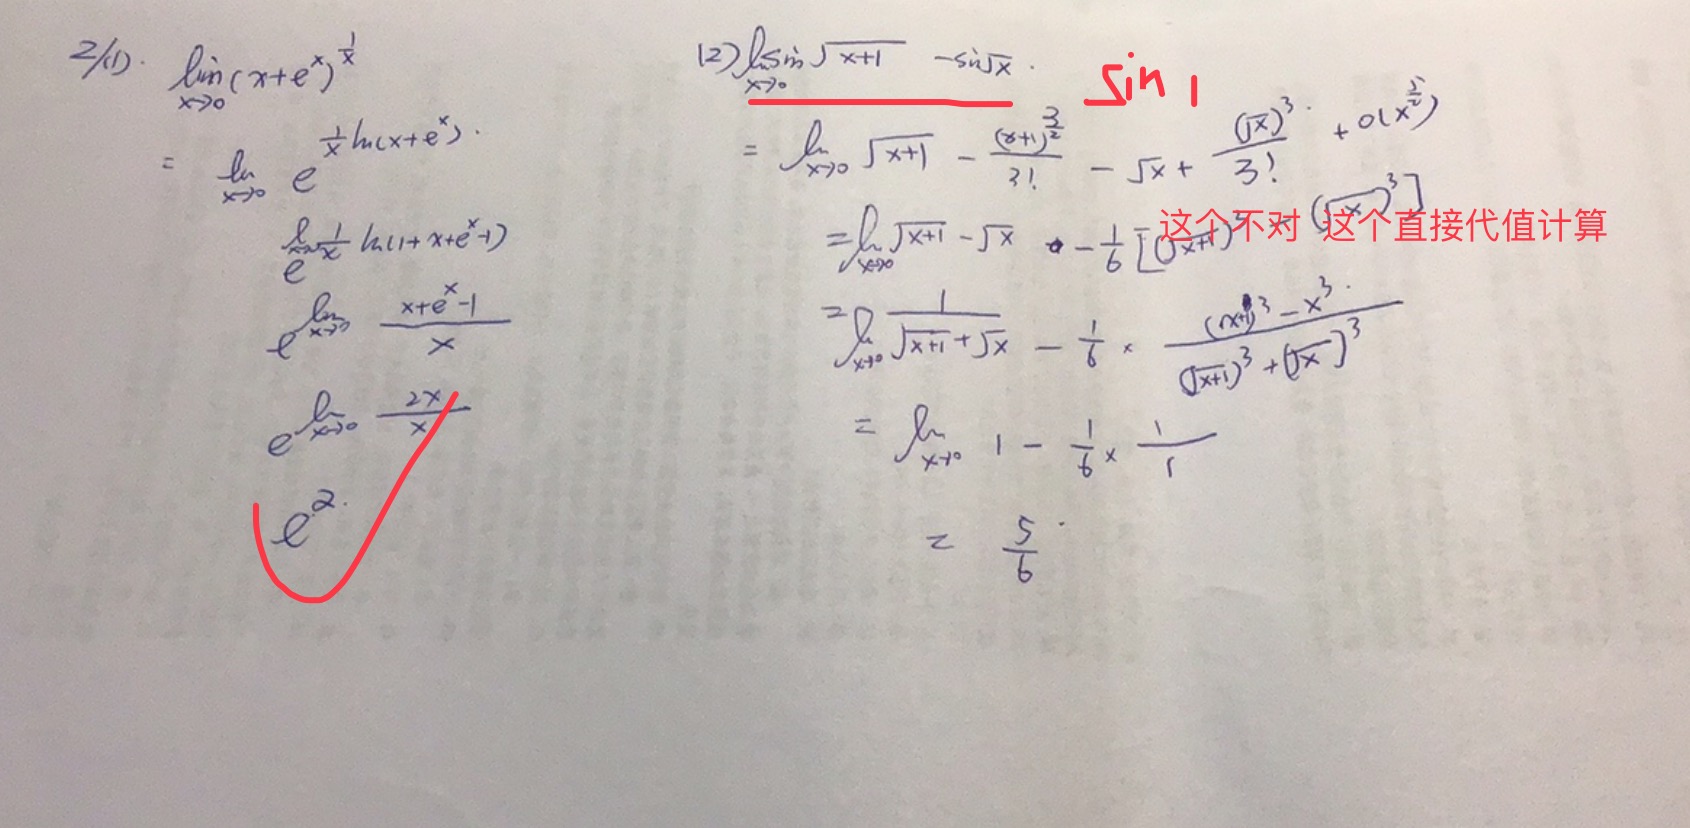 2/(1). lim x→0 (x+e^x)^(1/x)
= lim x→0 e^(1/x ln(x+e^x)).
e^(lim x→0 1/x ln(1+x+e^x-1))
e^(lim x→0 (x+e^x-1)/x)
e^(lim x→0 2x/x)
e^2.
(2) lim x→0 sin√(x+1) - sin√x. sin 1
= lim x→0 √(x+1) - (x+1)^(3/2)/3! - √x + (√x)^3/3! + o(x^(5/2))
= lim x→0 √(x+1) - √x - 1/6 [(√(x+1))^3 - (√x)^3]
这个不对 这个直接代值计算
= lim x→0 1/(√(x+1)+√x) - 1/6 × ((x+1)^3 - x^3)/((√(x+1))^3+(√x)^3)
= lim x→0 1 - 1/6 × 1/1
= 5/6